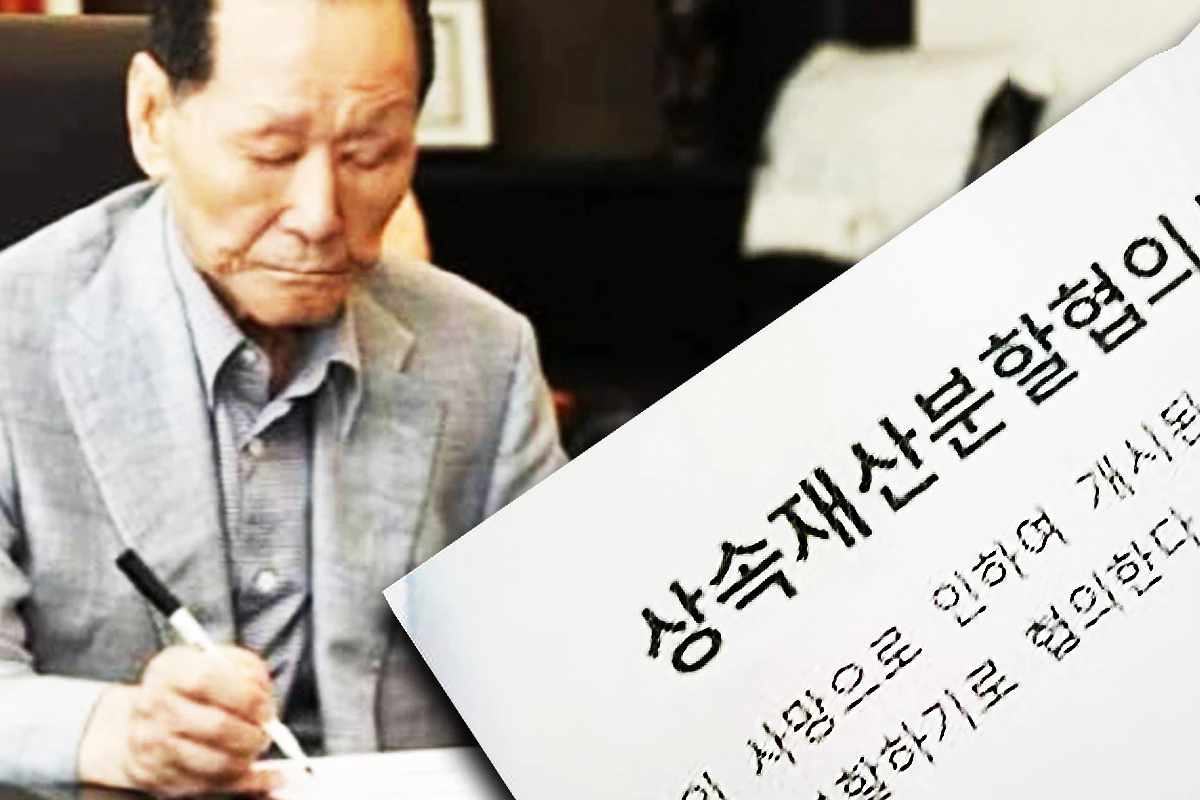 상속재산분할협의
사망으로 인하여 개시된
분할하기로 협의한다